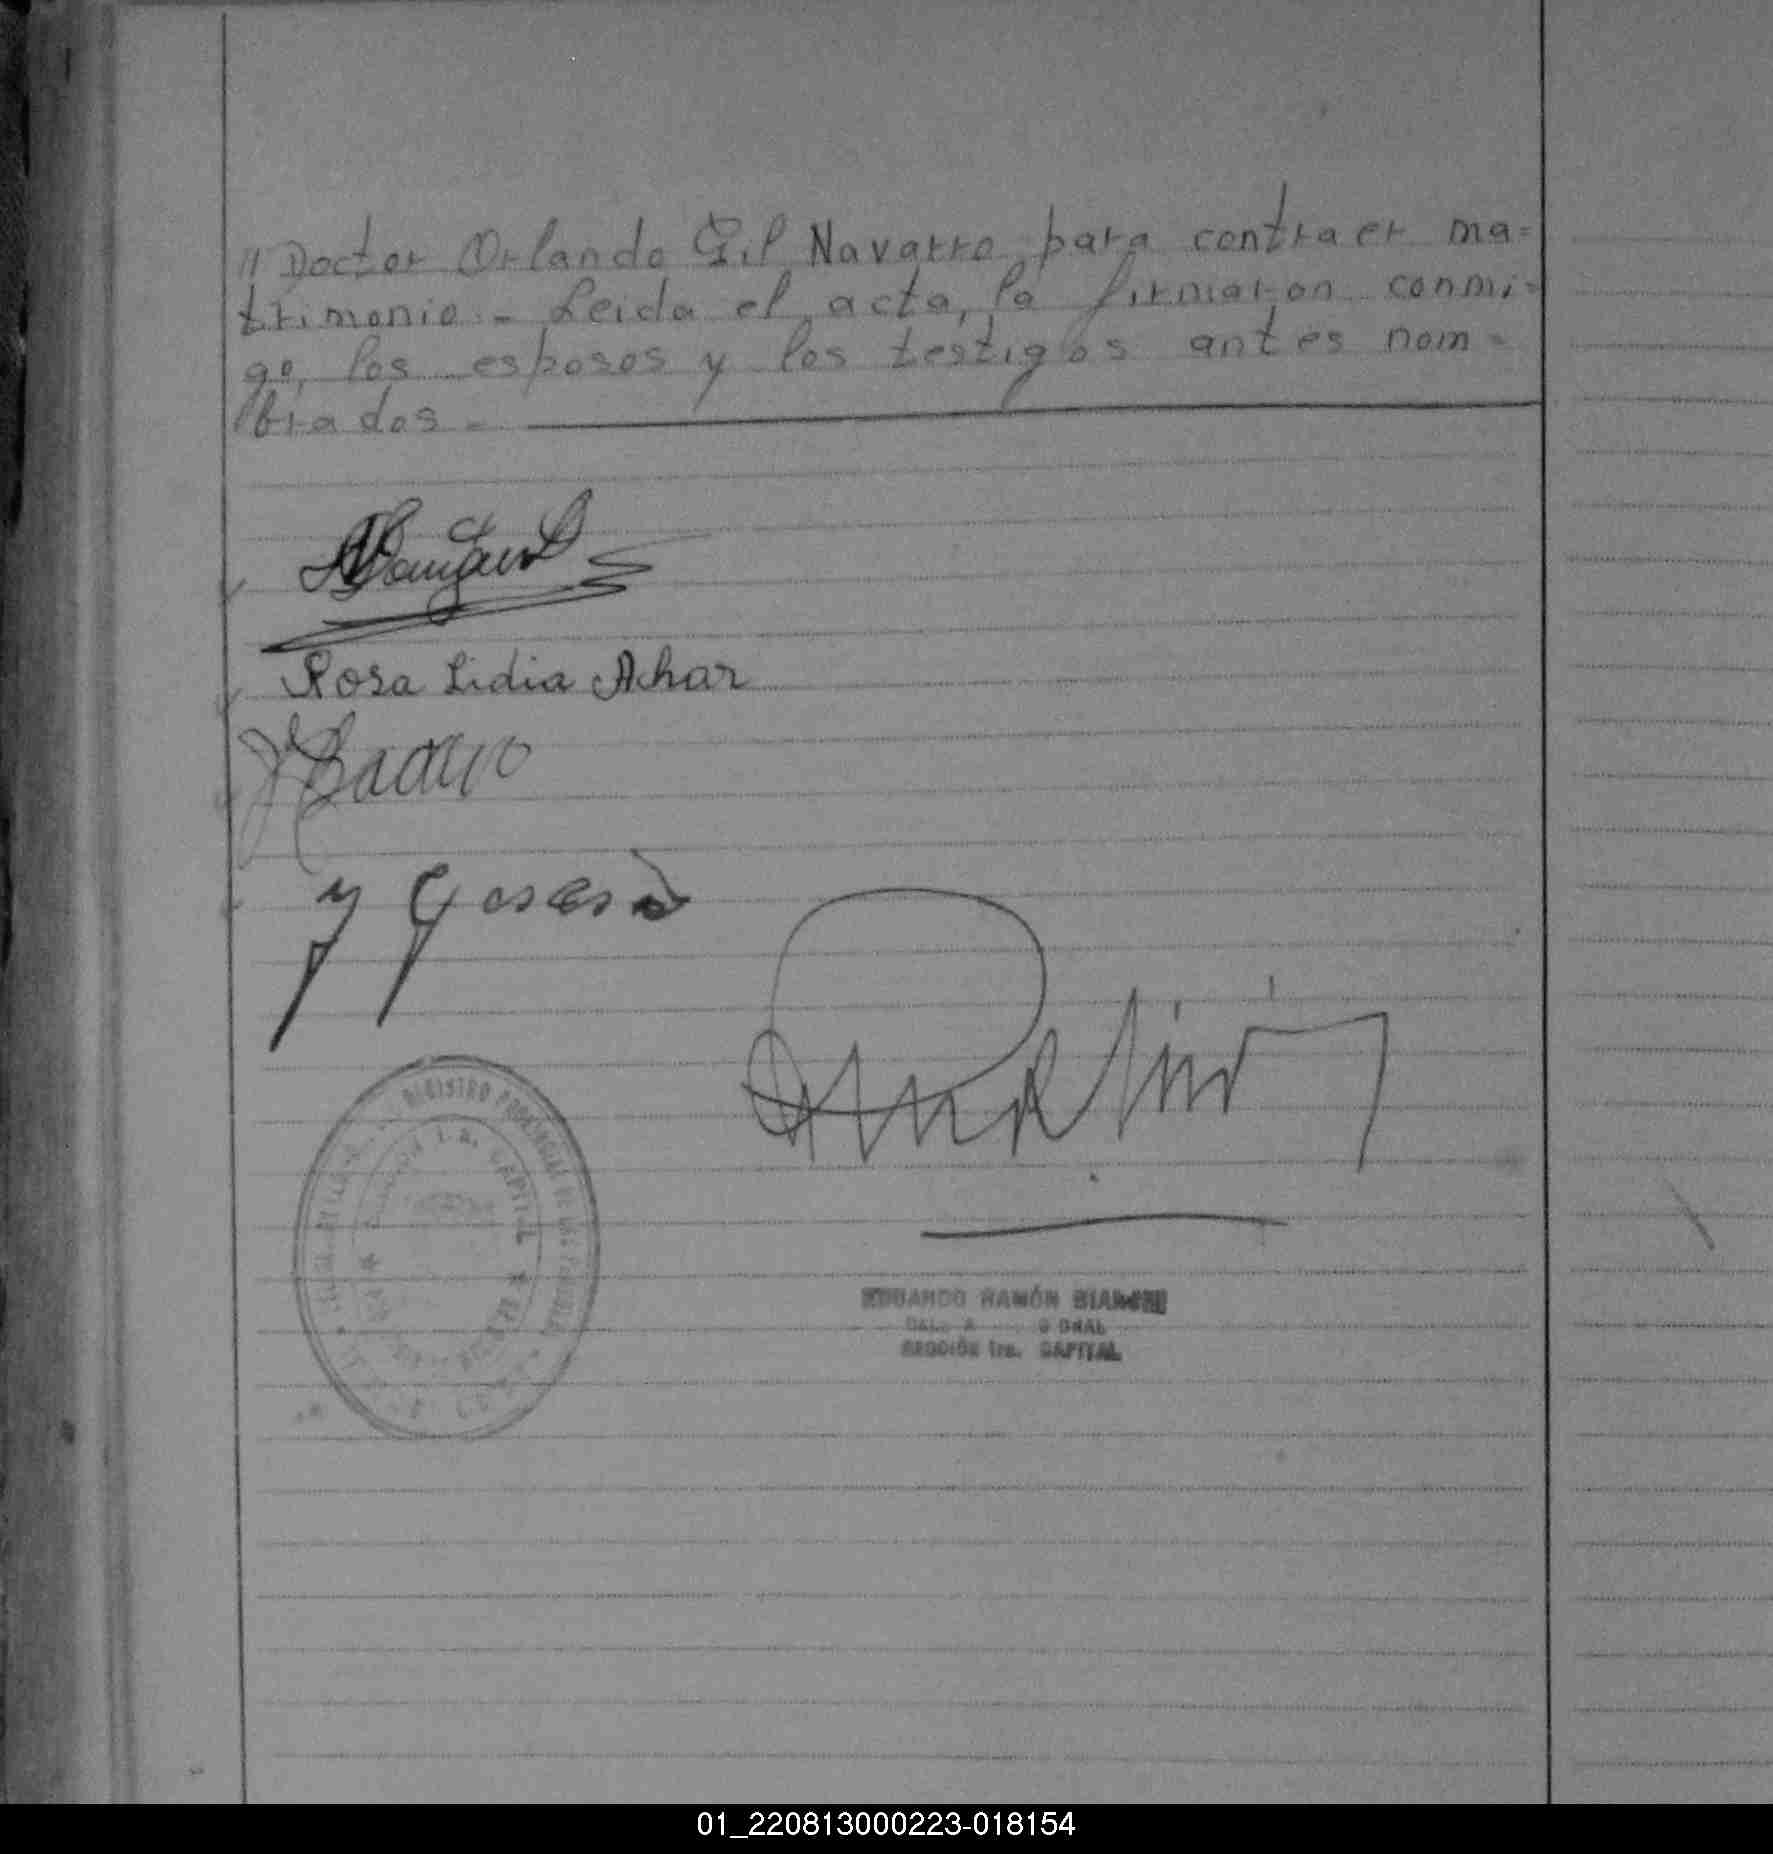 // Doctor Orlando Gil Navarro, para contraer ma=
trimonio.- Leida el acta, la firmaron conmi=
go, los esposos y los testigos antes nom=
brados.-
Rosa Lidia Ahar
REGISTRO PROVINCIAL DE LAS PERSONAS
CAPITAL
EDUARDO RAMÓN BIANCHI
SECCIÓN 1ra. CAPITAL
01_220813000223-018154